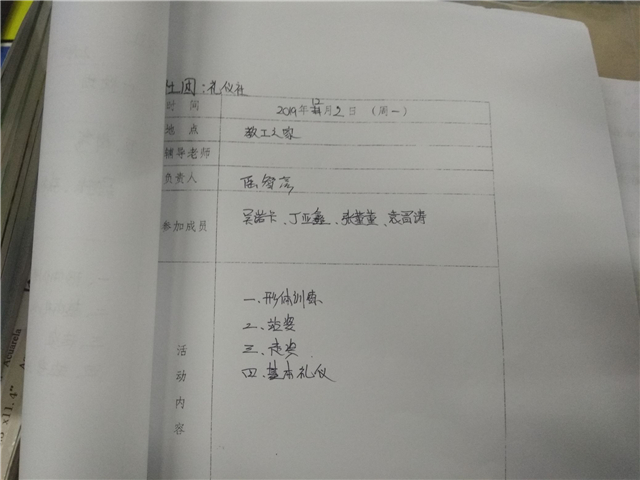 社团:礼仪社
时 间 2019年12月2日 (周一)
地 点 教工之家
辅导老师
负责人
参加成员 吴诺卡、丁亚鑫、张萱萱、袁雷涛
活动内容
一.形体训练
二.站姿
三.走姿
四.基本礼仪
Aquarela
x11.4"